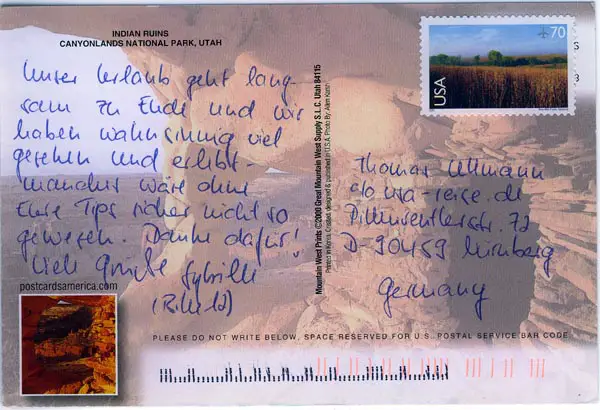 INDIAN RUINS
CANYONLANDS NATIONAL PARK, UTAH
Unser Urlaub geht lang-
sam zu Ende und wir
haben wahnsinnig viel
gesehen und erlebt -
manches wäre ohne
Eure Tips sicher nicht so
gewesen. Danke dafür!
Viele Grüße Sybille
postcardsamerica.com
Mountain West Prints ©2000 Great Mountain West Supply S.L.C. Utah 84115
Printed in Korea. Created, designed & published in U.S.A. Photo By: Allen Karsh
USA
70
Thomas Ullmann
c/o usa-reise.de
72
D-90459 Nürnberg
Germany
PLEASE DO NOT WRITE BELOW, SPACE RESERVED FOR U.S. POSTAL SERVICE BAR CODE